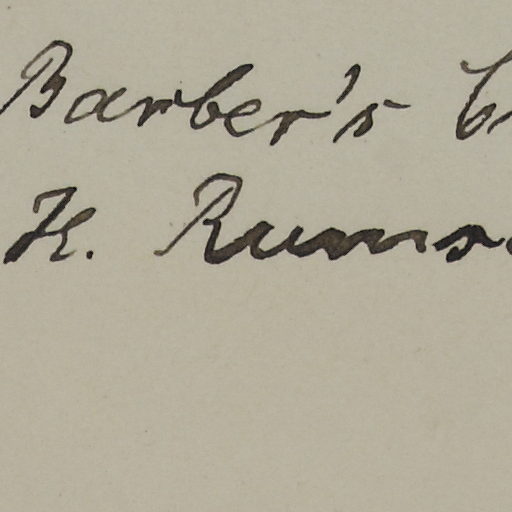 Barber's
H. Rums